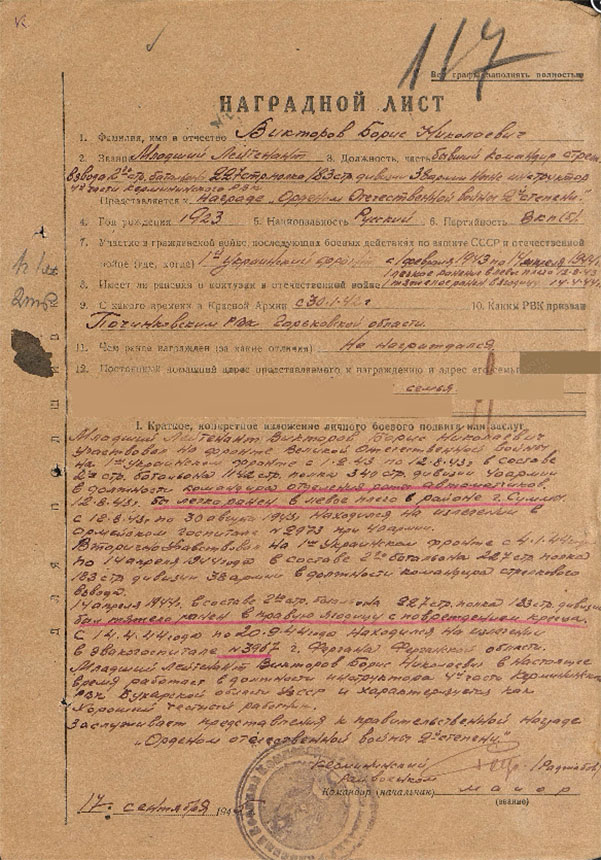 117
Все графы заполнять полностью
НАГРАДНОЙ ЛИСТ
1. Фамилия, имя и отчество Викторов Борис Николаевич
2. Звание Младший Лейтенант 3. Должность, часть бывший командир стрел.
взвода 2го стр. батальона 227 стр. полка 183 стр. дивизии 38 армии ныне инструктор
4 части Кермининского РВК
Представляется к Награде "Орденом Отечественной войны 2й степени".
4. Год рождения 1923 5. Национальность Русский 6. Партийность ВКП(б)
7. Участие в гражданской войне, последующих боевых действиях по защите СССР и отечественной
войне (где, когда) 1й Украинский фронт с 1 февраля 1943 по 14 апреля 1944г.
легкое ранение в левое плечо 12.8.43
8. Имеет ли ранения и контузии в отечественной войне тяжелое ранен в 14.4.44г.
9. С какого времени в Красной Армии с 30.1.42г 10. Каким РВК призван
Починковским РВК Горьковской области.
11. Чем ранее награжден (за какие отличия) Не награждался
12. Постоянный домашний адрес представляемого к награждению и адрес его семьи
семья
I. Краткое, конкретное изложение личного боевого подвига или заслуг
Младший Лейтенант Викторов Борис Николаевич
участвовал на фронте Великой Отечественной войны
на 1м Украинском фронте с 1.2.43 по 12.8.43г в составе
2го стр. батальона 1142 стр. полка 340 стр. дивизии армии
в должности командира отделения роты автоматчиков.
12.8.43г. был легко ранен в левое плечо в районе г. Суммы.
с 12.8.43г по 30 августа 1943г находился на излечении в
Армейском госпитале № 2973 при армии.
Вторично участвовал на 1м Украинском фронте с 4.1.44г
по 14 апреля 1944 года в составе 2го батальона 227 стр. полка
183 стр. дивизии 38 армии в должности командира стрелкового
взвода.
14 апреля 1944г. в составе 2го стр. батальона 227 стр. полка 183 стр. дивизии
был тяжело ранен в правую ягодицу с повреждением
С 14.4.44 года по 20.9.44 года находился на излечении
в эвакогоспитале № 3967 г. Фергана Ферганской области.
Младший Лейтенант Викторов Борис Николаевич в настоящее
время работает в должности инструктора 4й части Керминински
РВК Бухарской области УзССР и характеризуется как
хороший честный работник.
Заслуживает представления к правительственной награде
"Орденом отечественной войны 2й степени".
Кермининский
Райвоенком (Раджабов)
Командир (начальник) майор
(звание)
17. сентября 194